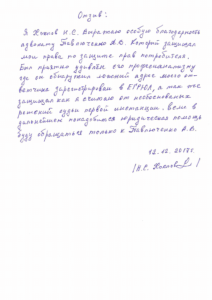 Отзыв:
Я И.С. Выражаю особую благодарность
адвокату Павлюченко А.В. Который защищал
мои права по защите прав потребителя,
был приятно удивлён его профессионализму
где он обнаружил ложный адрес моего от-
ветчика зарегистрирован в ЕГРЮЛ, а так же
защищал как я считаю от необоснованных
решений судьи первой инстанции, если в
дальнейшем понадобится юридическая помощь
буду обращаться только к Павлюченко А.В.
12.12.2017г.
/И.С.